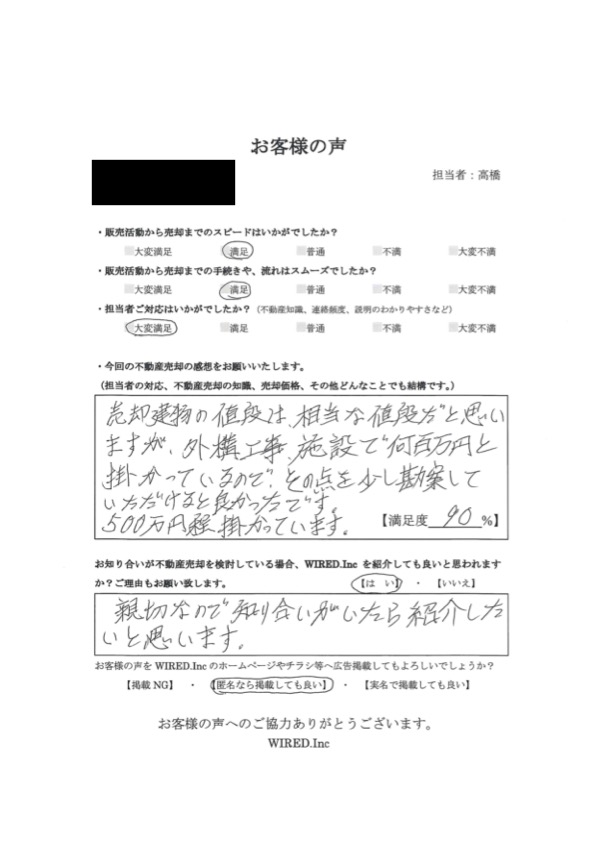 お客様の声
担当者：高橋
・販売活動から売却までのスピードはいかがでしたか？
大変満足 満足 普通 不満 大変不満
・販売活動から売却までの手続きや、流れはスムーズでしたか？
大変満足 満足 普通 不満 大変不満
・担当者ご対応はいかがでしたか？（不動産知識、連絡頻度、説明のわかりやすさなど）
大変満足 満足 普通 不満 大変不満
・今回の不動産売却の感想をお願いいたします。
（担当者の対応、不動産売却の知識、売却価格、その他どんなことでも結構です。）
売却建物の値段は、相当な値段だと思い
ますが、外構工事、施設で何百万円と
掛かっているので、その点を少し勘案して
いただけると良かったです。
500万円程掛かっています。
【満足度 90 %】
お知り合いが不動産売却を検討している場合、WIRED.Inc を紹介しても良いと思われます
か？ご理由もお願い致します。 【はい】 ・ 【いいえ】
親切なので知り合いがいたら紹介した
いと思います。
お客様の声を WIRED.Inc のホームページやチラシ等へ広告掲載してもよろしいでしょうか？
【掲載 NG】 ・ 【匿名なら掲載しても良い】 ・ 【実名で掲載しても良い】
お客様の声へのご協力ありがとうございます。
WIRED.Inc